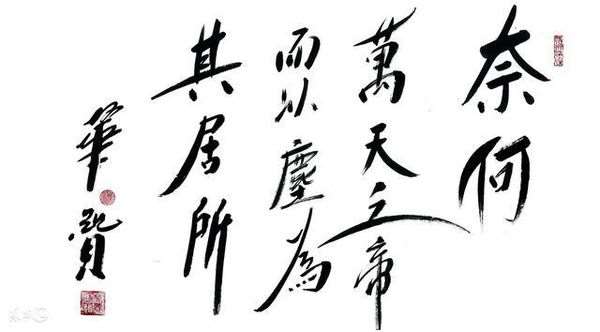 奈何
萬天之帝
而以塵為
其居所